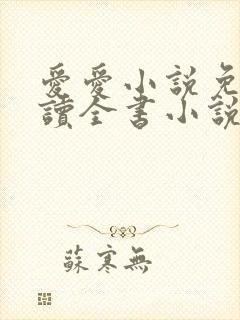 愛愛小說免
讀全書小說
蘇寒無